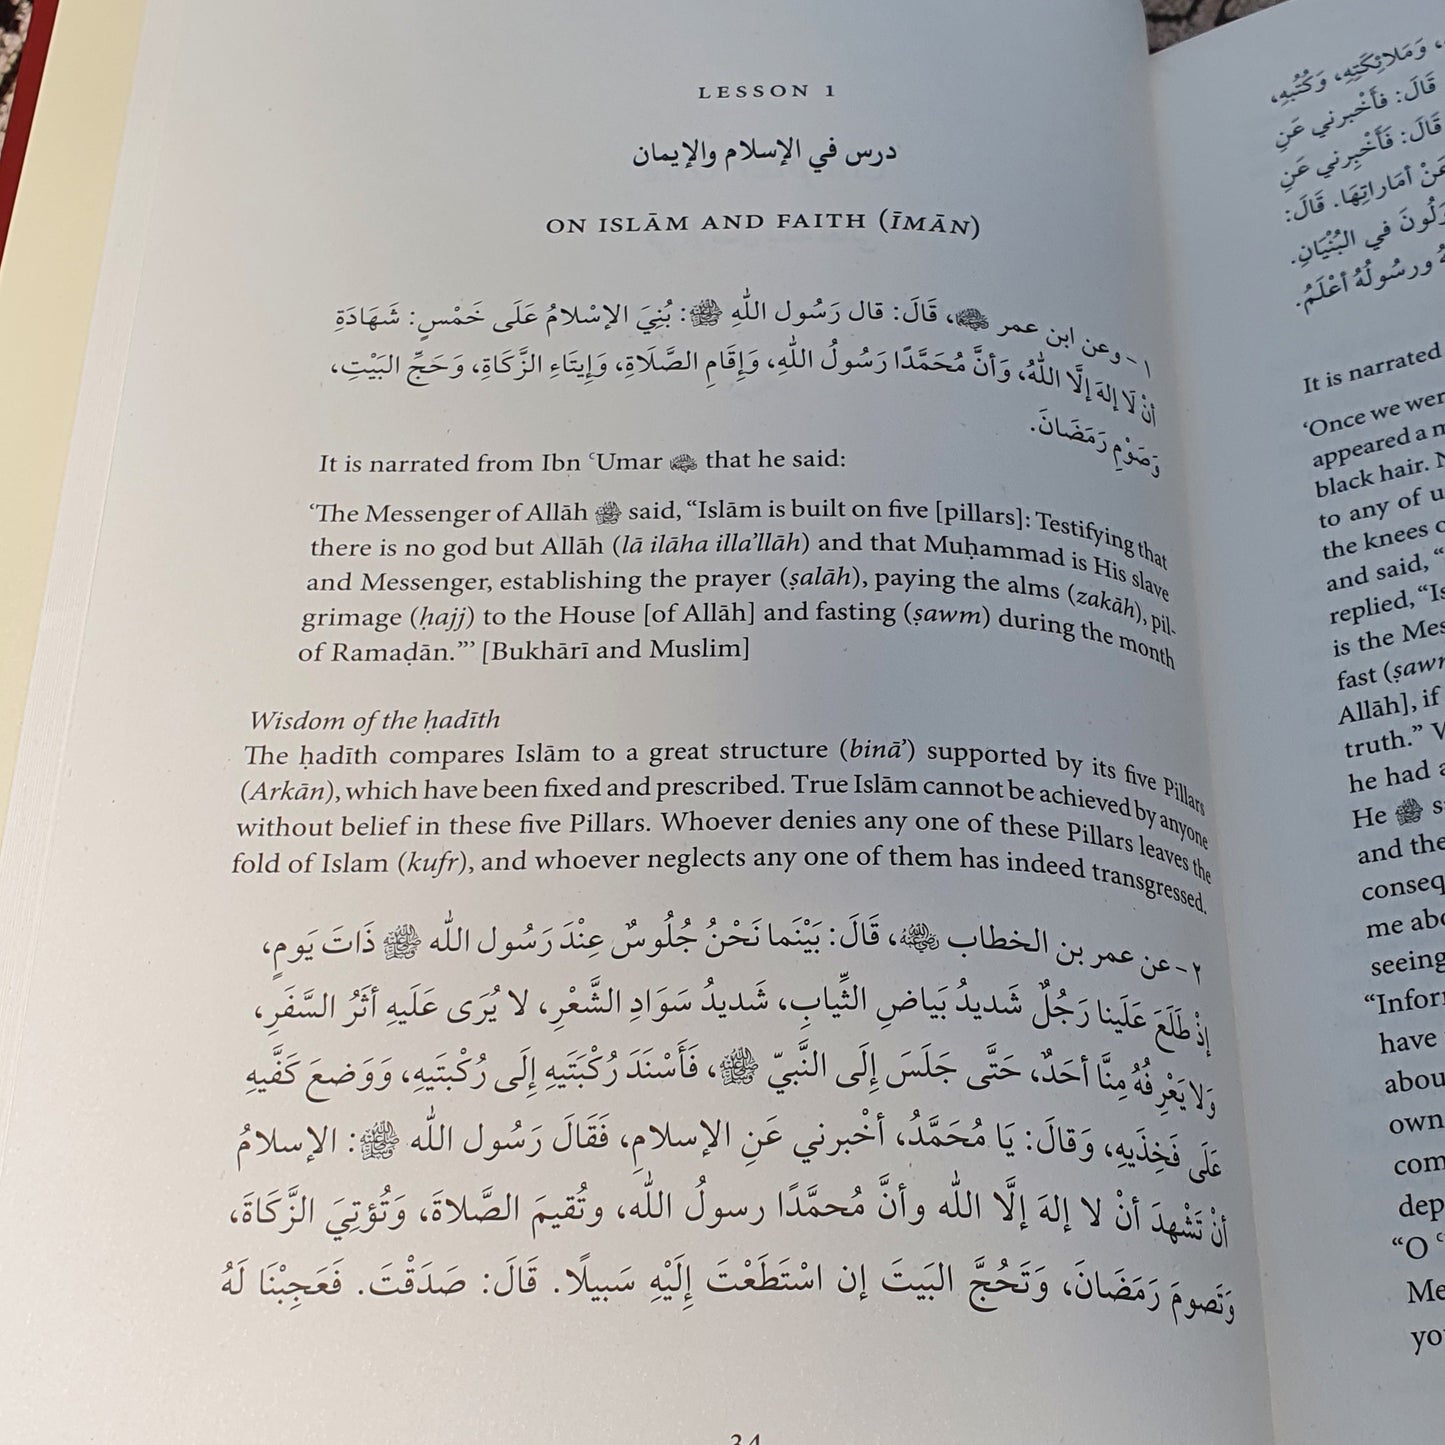 LESSON 1
درس في الإسلام والإيمان
ON ISLĀM AND FAITH (ĪMĀN)
١ – وعن ابن عمر ﷺ، قَالَ: قال رَسُول اللهِ ﷺ: بُنِيَ الإسْلامُ عَلَى خَمْسٍ: شَهَادَةِ
أنْ لَا إلهَ إلَّا اللهُ، وَأنَّ مُحَمَّدًا رَسُولُ اللهِ، وَإقَامِ الصَّلَاةِ، وَإيتَاءِ الزَّكَاةِ، وَحَجِّ البَيْتِ،
وَصَوْمِ رَمَضَانَ.
It is narrated from Ibn ʿUmar that he said:
‘The Messenger of Allāh ﷺ said, “Islām is built on five [pillars]: Testifying that
there is no god but Allāh (lā ilāha illa’llāh) and that Muḥammad is His slave
and Messenger, establishing the prayer (ṣalāh), paying the alms (zakāh), pil-
grimage (ḥajj) to the House [of Allāh] and fasting (ṣawm) during the month
of Ramaḍān.”’ [Bukhārī and Muslim]
Wisdom of the ḥadīth
The ḥadīth compares Islām to a great structure (binā’) supported by its five Pillars
(Arkān), which have been fixed and prescribed. True Islām cannot be achieved by anyone
without belief in these five Pillars. Whoever denies any one of these Pillars leaves the
fold of Islam (kufr), and whoever neglects any one of them has indeed transgressed.
٢ – عن عمر بن الخطاب، قَالَ: بَيْنَما نَحْنُ جُلُوسٌ عِنْدَ رَسُول الله ﷺ ذَاتَ يَومٍ،
إذْ طَلَعَ عَلَينا رَجُلٌ شَديدُ بَياضِ الثِّيابِ، شَديدُ سَوَادِ الشَّعْرِ، لا يُرَى عَلَيهِ أثَرُ السَّفَرِ،
وَلا يَعْرِفُهُ مِنَّا أحَدٌ، حَتَّى جَلَسَ إلَى النَّبيّ ﷺ، فَأَسْنَدَ رُكْبَتَيهِ إلَى رُكْبتَيهِ، وَوَضعَ كَفَّيهِ
عَلَى فَخِذَيهِ، وَقالَ: يَا مُحَمَّدُ، أخْبرني عَنِ الإسلامِ، فَقَالَ رَسُول الله ﷺ: الإسلامُ
أنْ تَشْهدَ أنْ لا إلهَ إلَّا الله وأنَّ مُحمَّدًا رسولُ الله، وتُقيمَ الصَّلاةَ، وَتُؤتِيَ الزَّكَاةَ،
وَتَصومَ رَمَضَانَ، وَتَحُجَّ البَيتَ إن اسْتَطَعْتَ إلَيْهِ سَبيلًا. قَالَ: صَدَقْتَ. فَعَجِبْنَا لَهُ
34
وَمَلائِكَتِهِ، وَكُتُبهِ،
قَالَ: فأَخْبرني عَنِ
قَالَ: فَأَخْبِرني عَنِ
عَنْ أمَاراتِهَا. قَالَ:
في البُنْيَانِ.
ورسُولُهُ أعْلَمُ.
It is narrated
‘Once we wer
appeared a m
black hair. N
to any of u
the knees o
and said, “
replied, “Is
is the Mes
fast (ṣawm
Allāh], if
truth.” W
he had a
He ﷺ s
and the
conseq
me abo
seeing
“Infor
have
abou
own
com
dep
“O
Me
yo